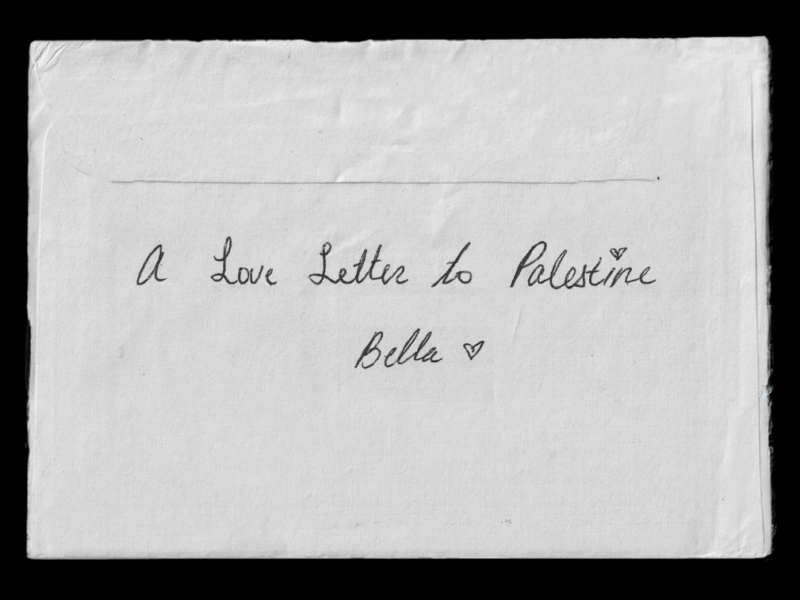 A Love Letter to Palestine
Bella ♡